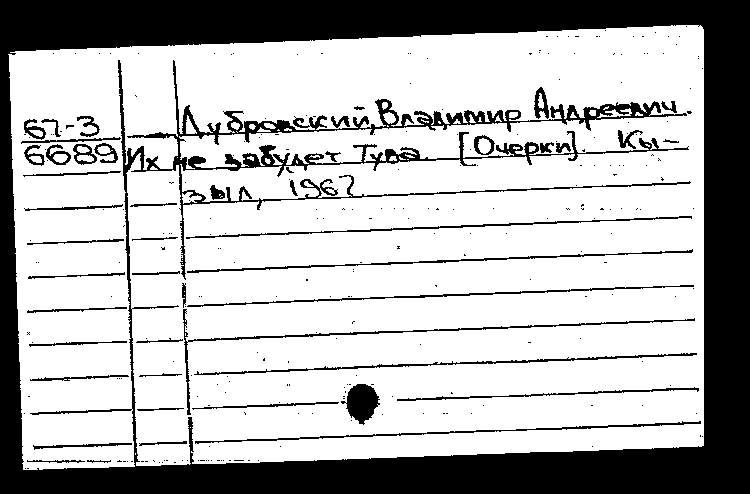 67-3 Дубровский, Владимир Андреевич.
6689 Их не забудет Тува. [Очерки]. Кы-
зыл, 1967